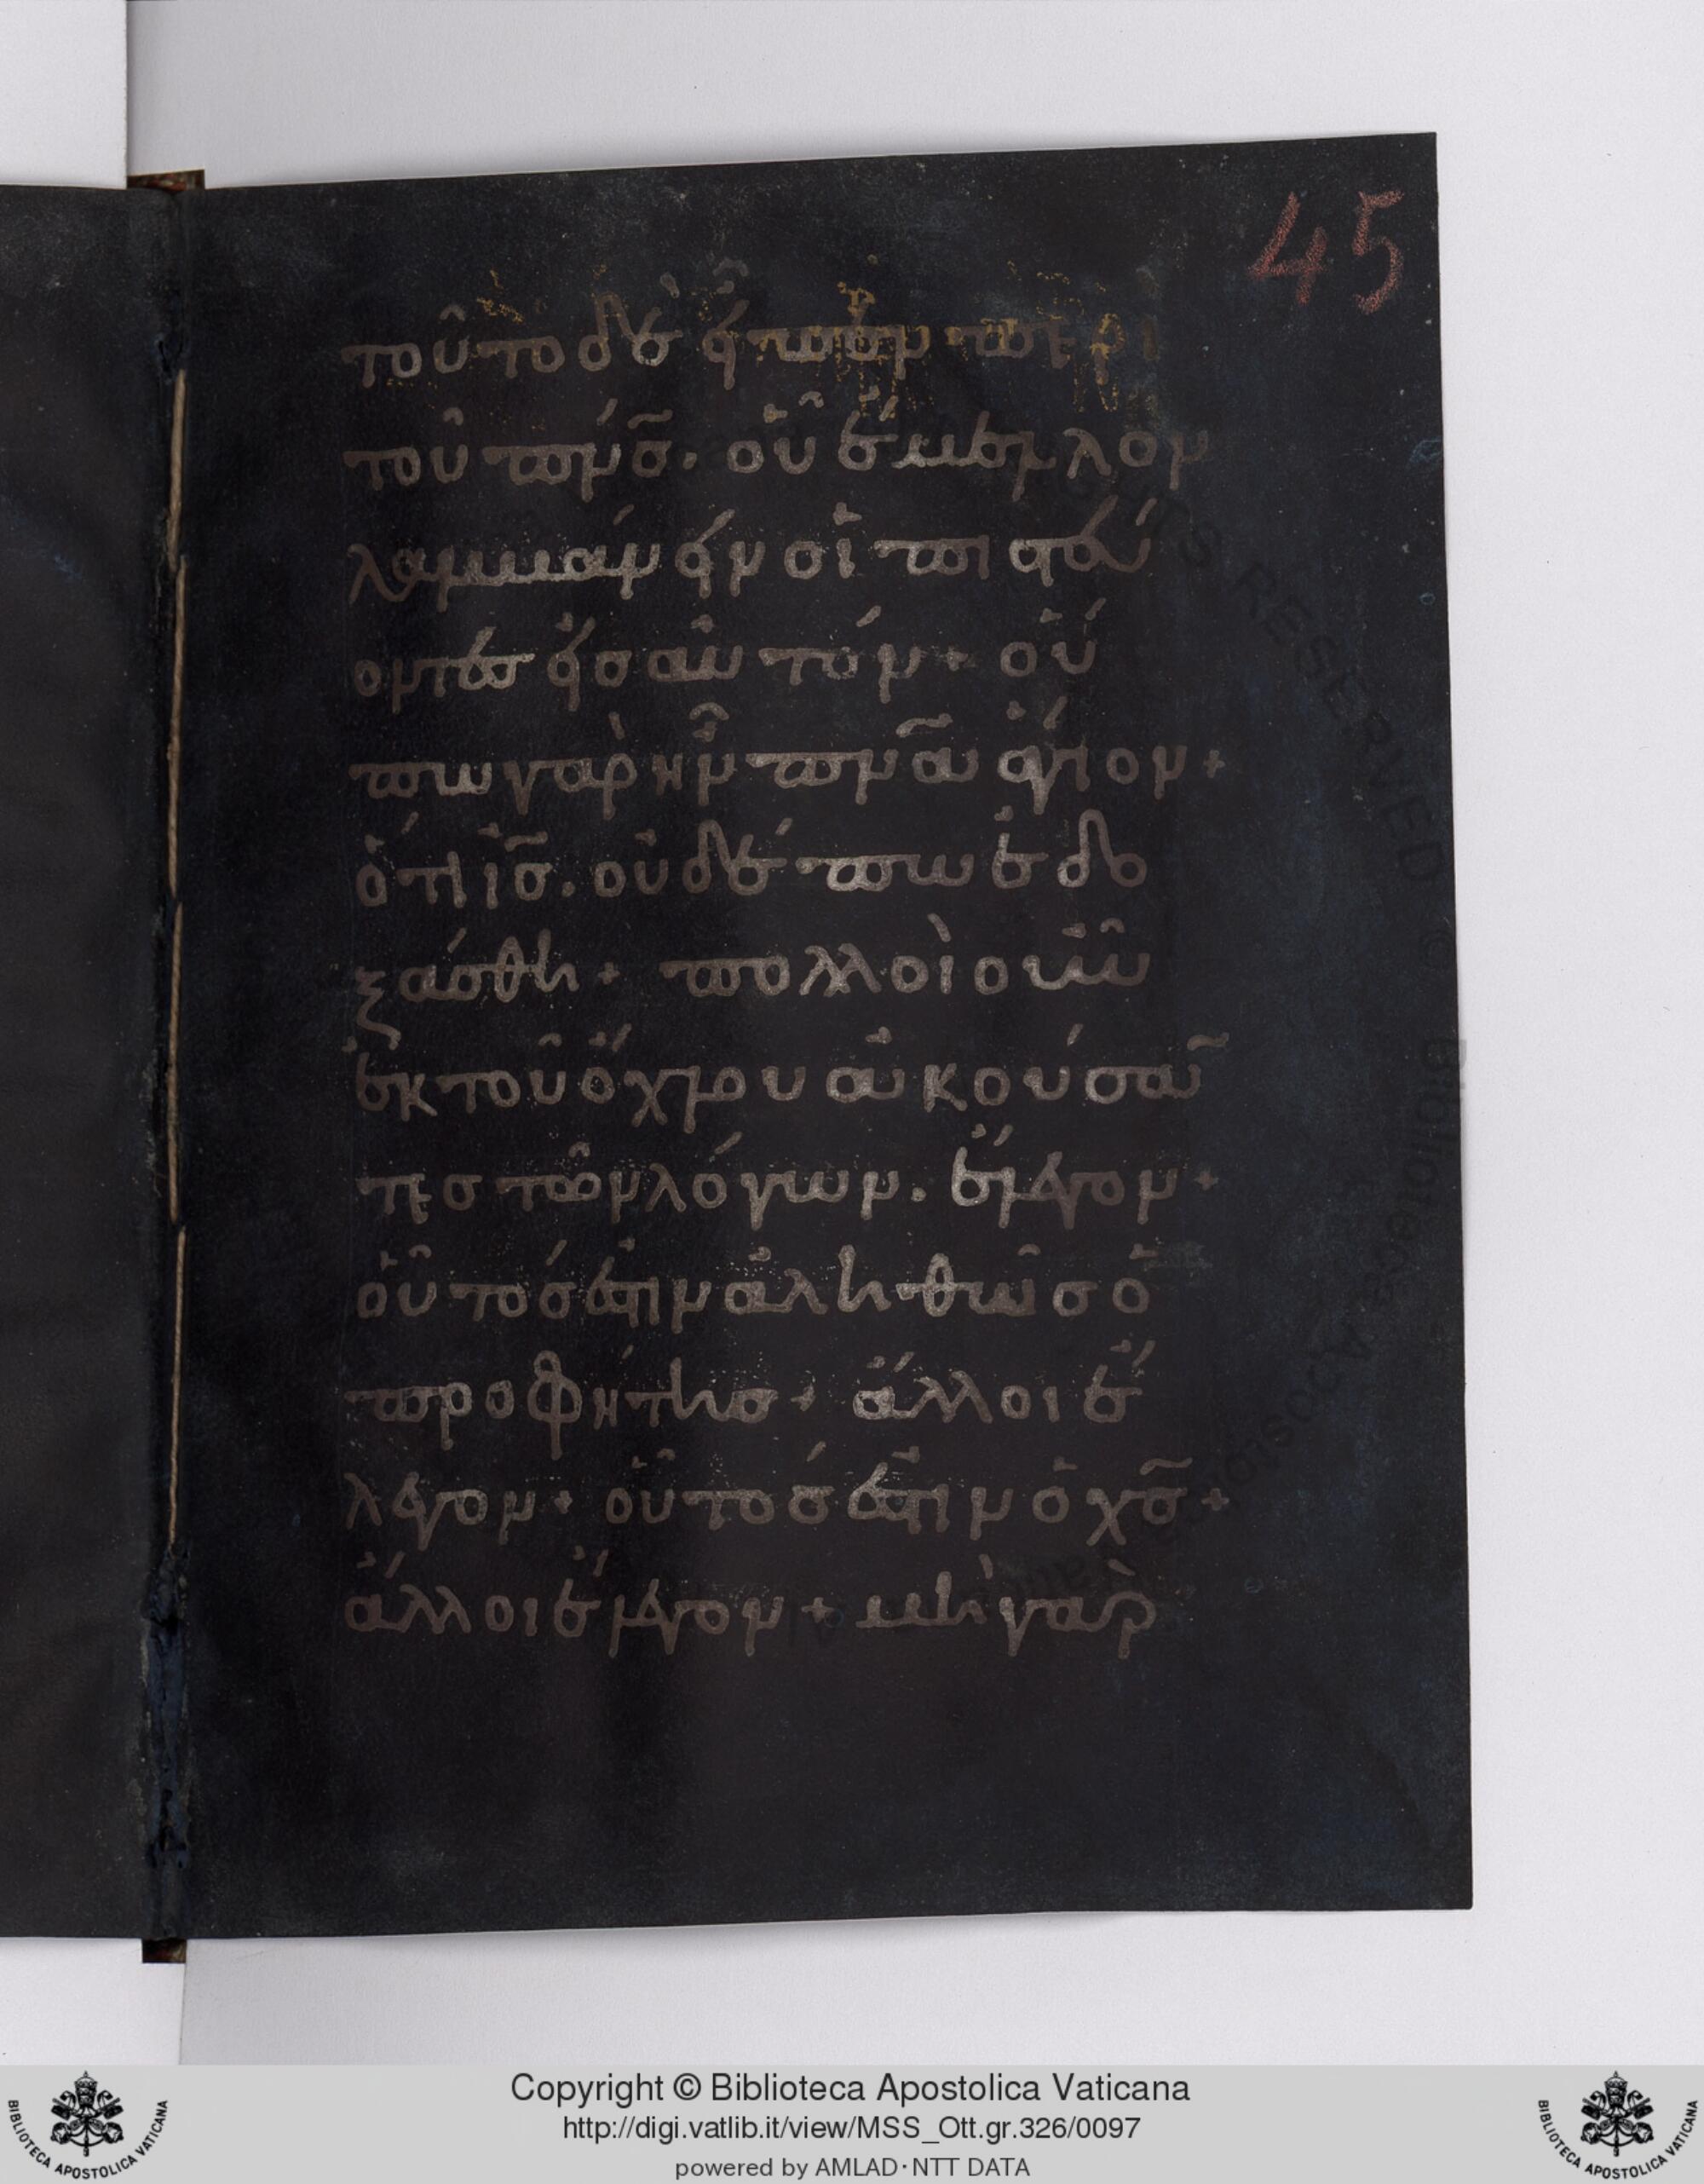 45
τοῦτο δὲ εἶπεν περι
τοῦ πν̅σ. οὗ ἔμελλον
λαμβάνειν οἱ πιστεύ
οντεσ εἰσ αὐτόν + οὔ
πω γὰρ ἦν πν̅α ἅγιον +
ὅτι ἰσ̅. οὐδέπω ἐδο
ξάσθη + πολλοὶ οὖν
ἐκ τοῦ ὄχλου ἀκούσα̅
τεσ τῶν λόγων. ἔλεγον +
οὗτόσ ἐστιν ἀληθῶσ ὁ
προφήτησ + ἄλλοι ἔ
λεγον + οὗτόσ ἐστιν ὁ χσ̅ +
ἄλλοι ἔλεγον + μὴ γὰρ
Copyright © Biblioteca Apostolica Vaticana
http://digi.vatlib.it/view/MSS_Ott.gr.326/0097
powered by AMLAD·NTT DATA
BIBLIOTECA APOSTOLICA VATICANA
BIBLIOTECA APOSTOLICA VATICANA